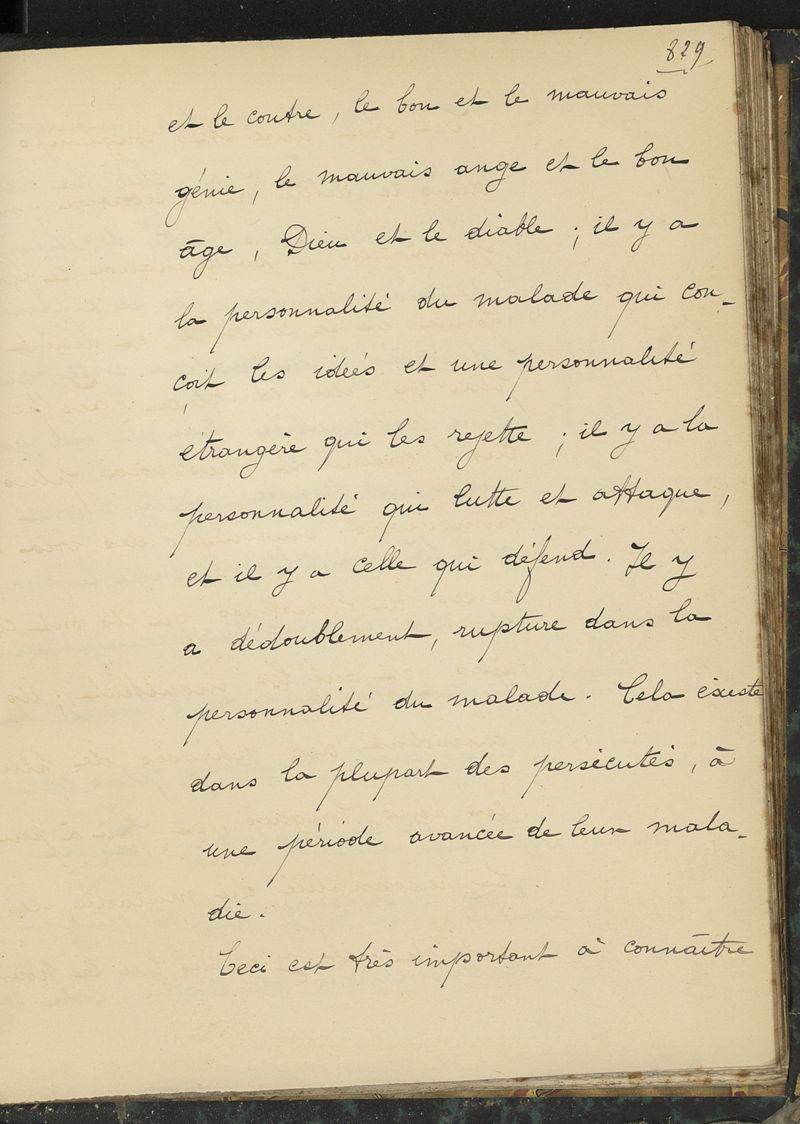 829
et le contre, le bon et le mauvais
génie, le mauvais ange et le bon
âge, Dieu et le diable ; il y a
la personnalité du malade qui con-
çoit les idées et une personnalité
étrangère qui les rejette ; il y a la
personnalité qui lutte et attaque,
et il y a celle qui défend. Il y
a dédoublement, rupture dans la
personnalité du malade. Cela existe
dans la plupart des persécutés, à
une période avancée de leur mala-
die.
Ceci est très important à connaître